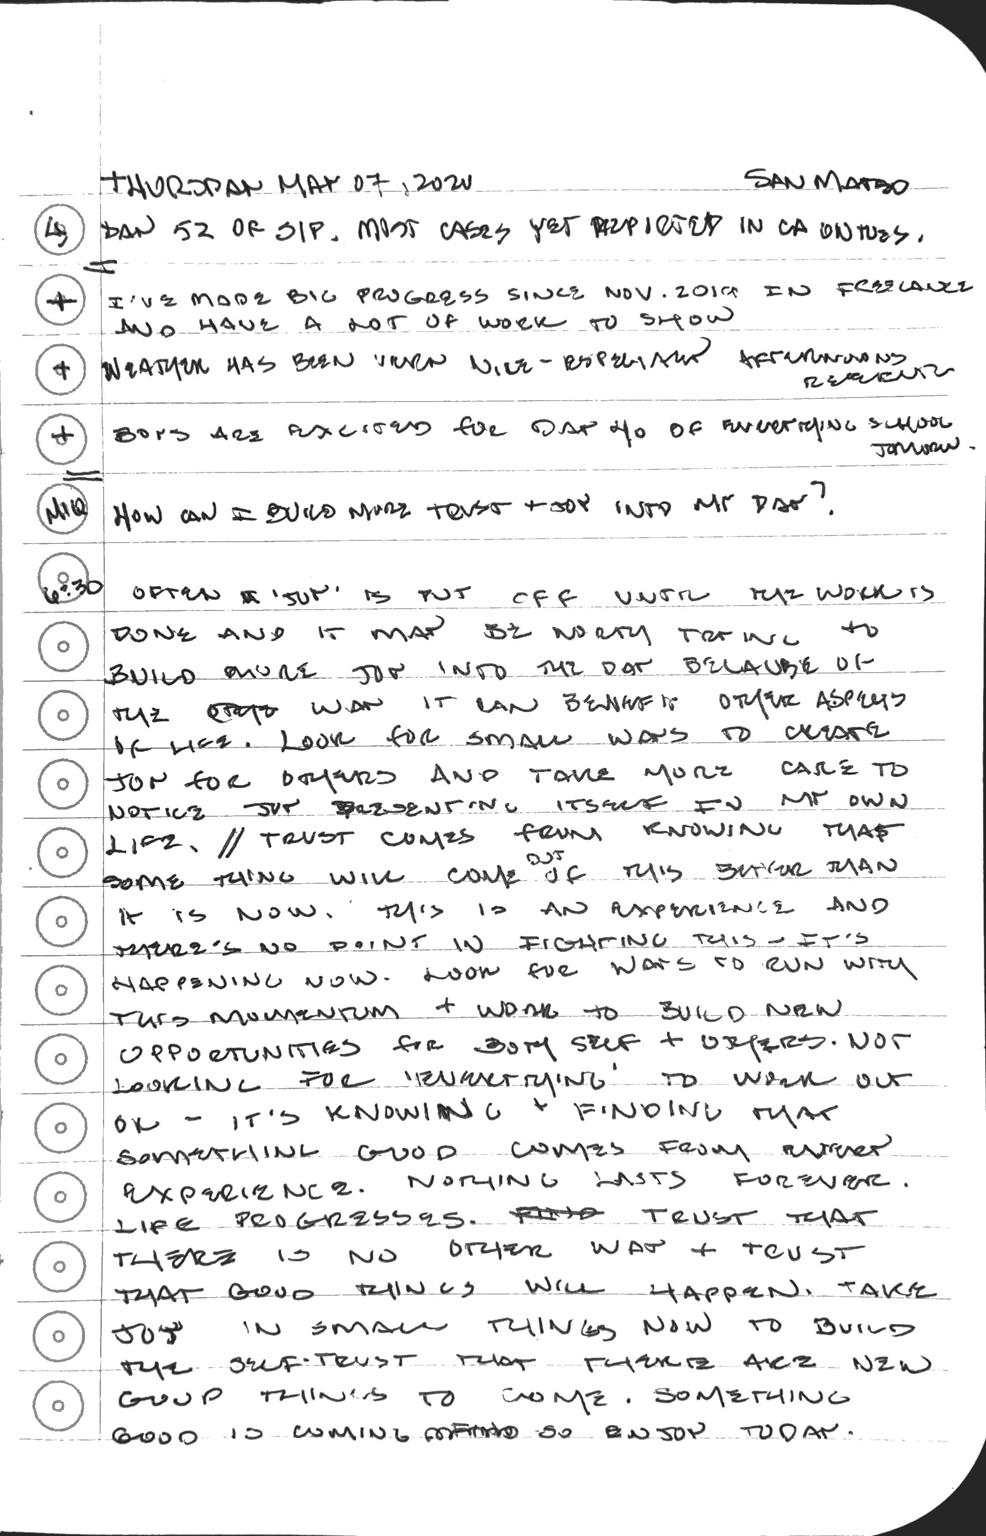 THURSDAY MAY 07, 2020 SAN MATEO
49 DAY 52 OF SIP. MOST CASES YET REPORTED IN CA ON TUES.
+ I'VE MADE BIG PROGRESS SINCE NOV. 2019 IN FREELANCE
AND HAVE A LOT OF WORK TO SHOW
+ WEATHER HAS BEEN VERY NICE - ESPECIALLY AFTERNOONS
RECENTLY
+ BOYS ARE EXCITED FOR DAY 40 OF EVERYTHING SCHOOL
TOMORROW.
MIQ HOW CAN I BUILD MORE TRUST + JOY INTO MY DAY?
6:30 OFTEN 'JOY' IS PUT OFF UNTIL THE WORK IS
DONE AND IT MAY BE WORTH TRYING TO
BUILD MORE JOY INTO THE DAY BECAUSE OF
THE WAY IT CAN BENEFIT OTHER ASPECTS
OF LIFE. LOOK FOR SMALL WAYS TO CREATE
JOY FOR OTHERS AND TAKE MORE CARE TO
NOTICE JOY PRESENTING ITSELF IN MY OWN
LIFE. // TRUST COMES FROM KNOWING THAT
SOMETHING WILL COME OUT OF THIS BETTER THAN
IT IS NOW. THIS IS AN EXPERIENCE AND
THERE'S NO POINT IN FIGHTING THIS - IT'S
HAPPENING NOW. LOOK FOR WAYS TO RUN WITH
THIS MOMENTUM + WORK TO BUILD NEW
OPPORTUNITIES FOR BOTH SELF + OTHERS. NOT
LOOKING FOR 'EVERYTHING' TO WORK OUT
OK - IT'S KNOWING + FINDING THAT
SOMETHING GOOD COMES FROM EVERY
EXPERIENCE. NOTHING LASTS FOREVER.
LIFE PROGRESSES. TRUST THAT
THERE IS NO OTHER WAY + TRUST
THAT GOOD THINGS WILL HAPPEN. TAKE
JOY IN SMALL THINGS NOW TO BUILD
THE SELF-TRUST THAT THERE ARE NEW
GOOD THINGS TO COME. SOMETHING
GOOD IS COMING SO ENJOY TODAY.